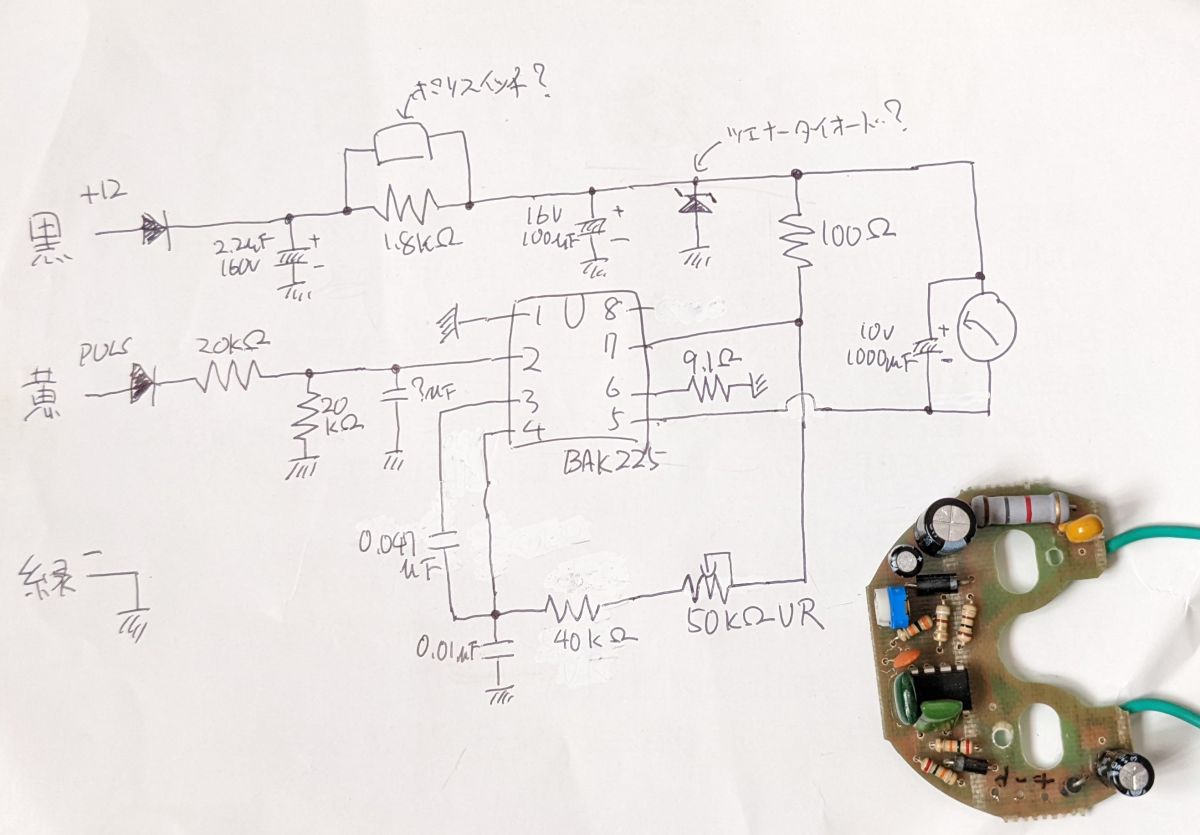 ポリスイッチ?
ツェナーダイオード?
+12
黒
2.2μF
160V
1.8kΩ
16V
100μF
+
-
+
-
100Ω
PULS
黄
20kΩ
20
kΩ
?μF
1
2
3
4
8
7
6
5
9.1Ω
BAK225
10V
1000μF
+
-
緑
-
0.047
μF
0.01μF
40kΩ
50kΩVR